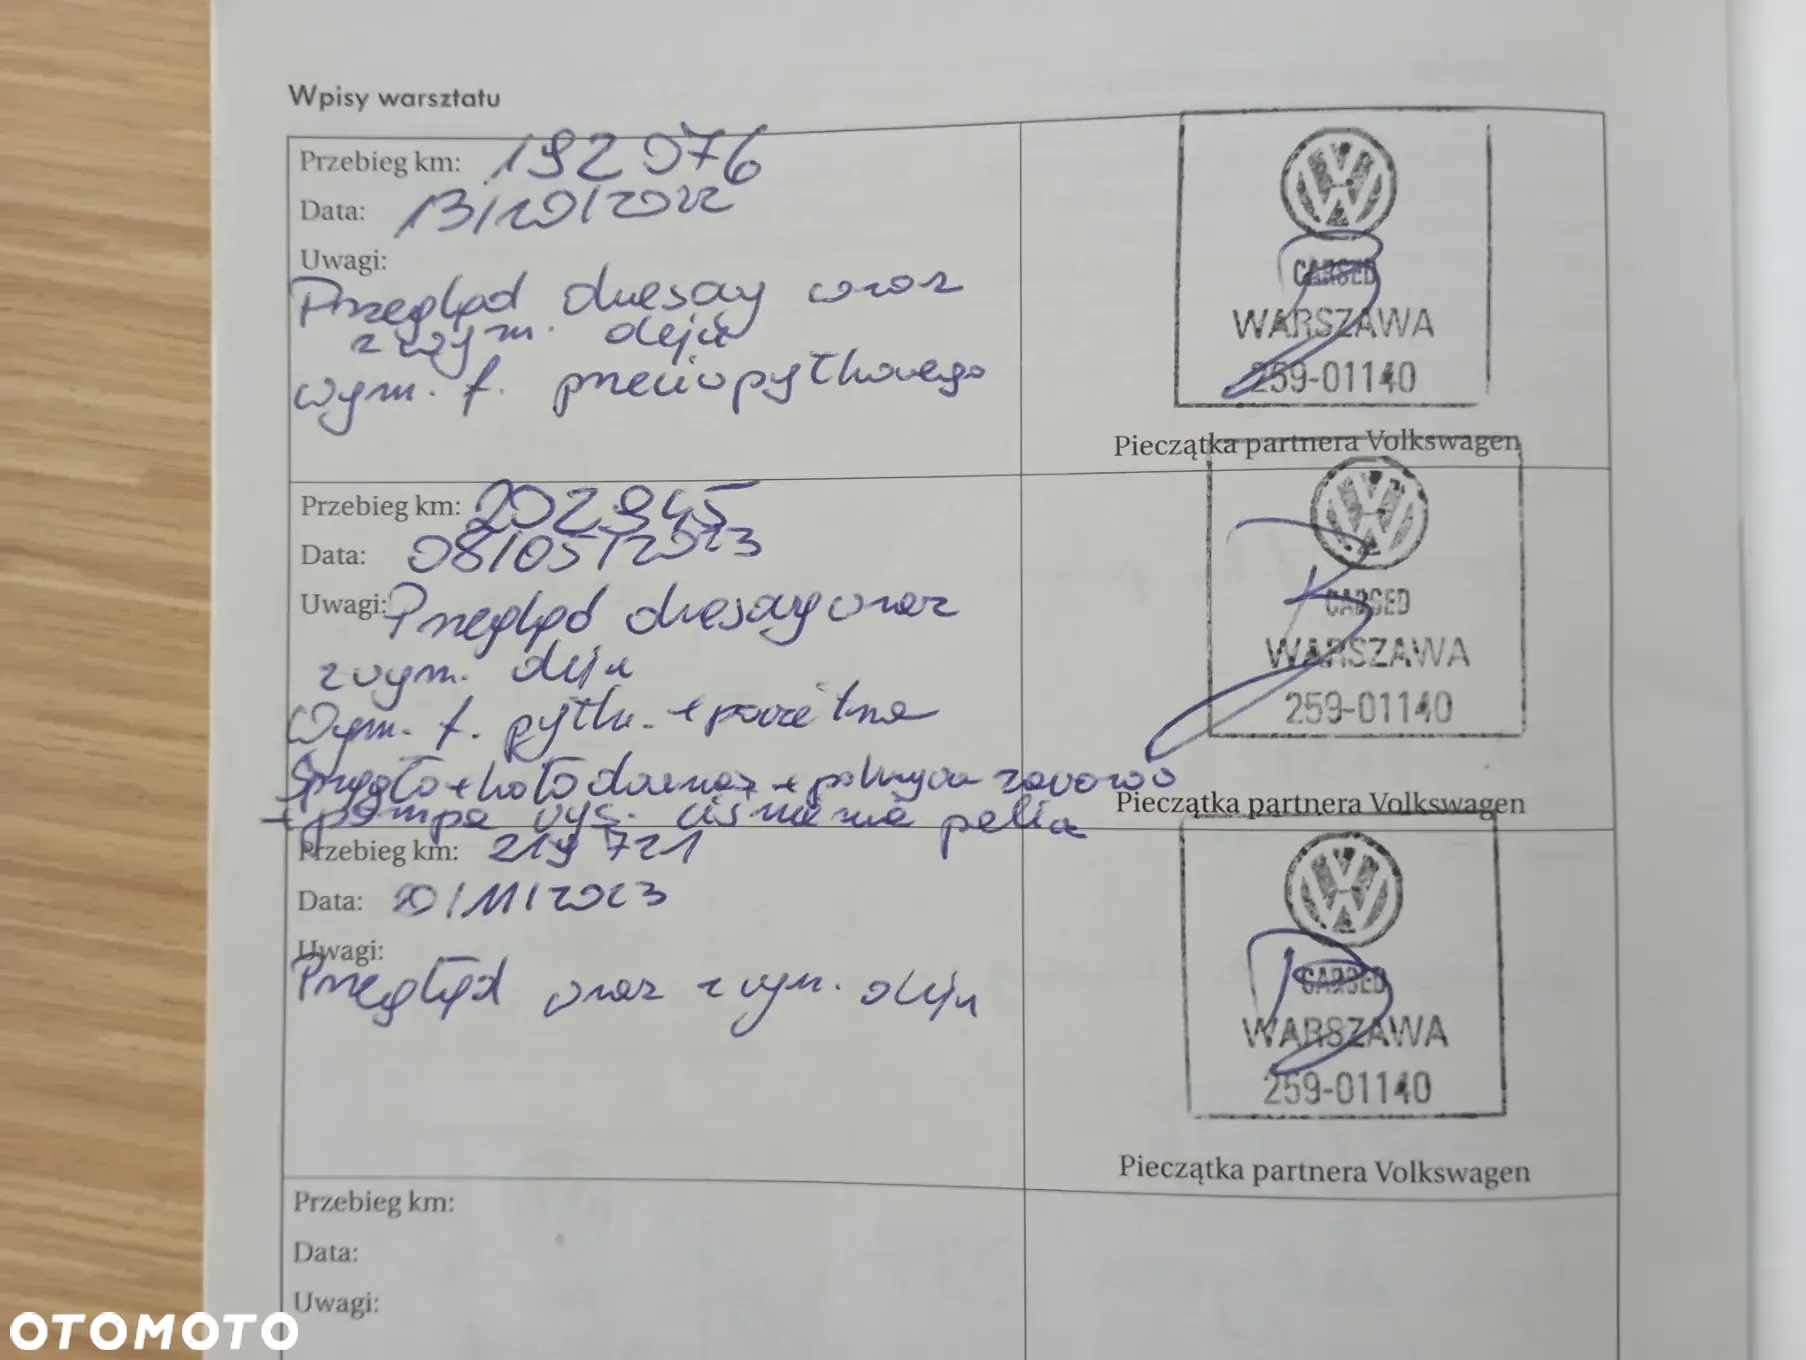 Wpisy warsztatu
Przebieg km: 192 076
Data: 13/10/2022
Uwagi:
Przegląd okresowy oraz
z wym. oleju
wym. f. przeciwpyłkowego
CARSED
WARSZAWA
259-01140
Pieczątka partnera Volkswagen
Przebieg km: 202 945
Data: 08/05/2023
Uwagi: Przegląd okresowy oraz
z wym. oleju
Wym. f. pyłk. + powietrza
Sprzęgło + koło dwumas. + pokrywa zaworów
+ pompa wys. ciśnienia paliwa
CARSED
WARSZAWA
259-01140
Pieczątka partnera Volkswagen
Przebieg km: 219 721
Data: 20/11/2023
Uwagi:
Przegląd oraz z wym. oleju
CARSED
WARSZAWA
259-01140
Pieczątka partnera Volkswagen
Przebieg km:
Data:
Uwagi:
OTOMOTO